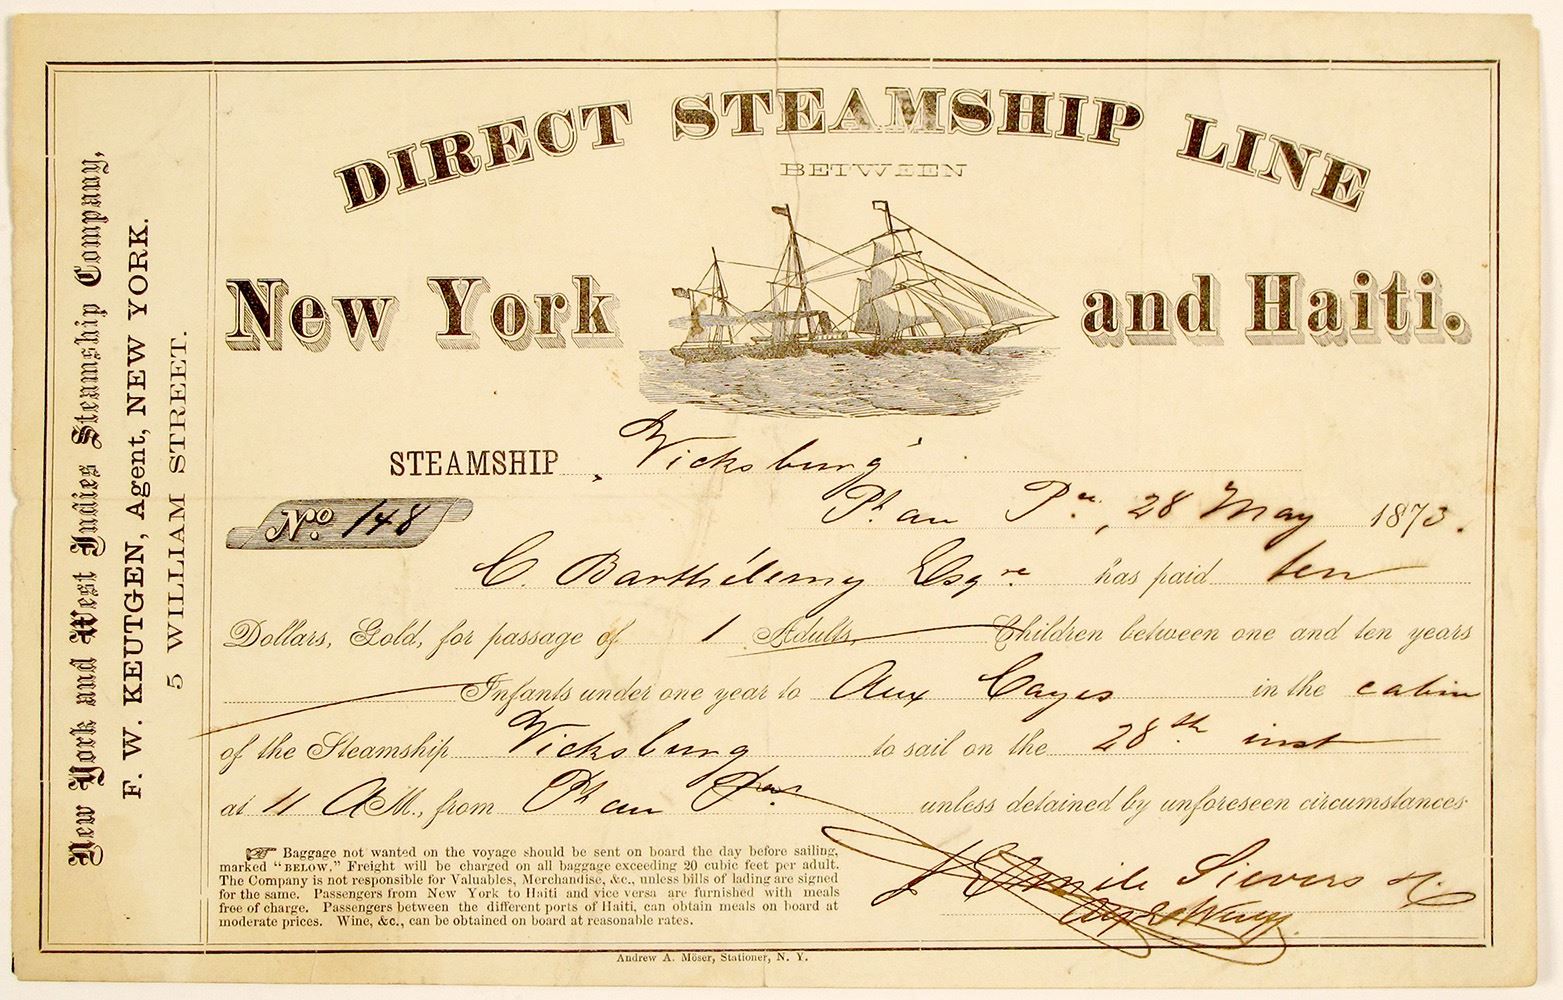 New York and West Indies Steamship Company,
F. W. KEUTGEN, Agent, NEW YORK.
5 WILLIAM STREET.
DIRECT STEAMSHIP LINE
BETWEEN
New York and Haiti.
STEAMSHIP Vicksburg
Pt. au Pce., 28 May 1873.
No. 148
C. Barthélemy Esqre has paid ten
Dollars, Gold, for passage of 1 Adults, Children between one and ten years
Infants under one year to Aux Cayes in the cabin
of the Steamship Vicksburg to sail on the 28th inst
at 11 A M., from Pt au Pce unless detained by unforeseen circumstances
☞ Baggage not wanted on the voyage should be sent on board the day before sailing,
marked "BELOW." Freight will be charged on all baggage exceeding 20 cubic feet per adult.
The Company is not responsible for Valuables, Merchandise, &c., unless bills of lading are signed
for the same. Passengers from New York to Haiti and vice versa are furnished with meals
free of charge. Passengers between the different ports of Haiti, can obtain meals on board at
moderate prices. Wine, &c., can be obtained on board at reasonable rates.
Emile Sievers
Andrew A. Möser, Stationer, N. Y.